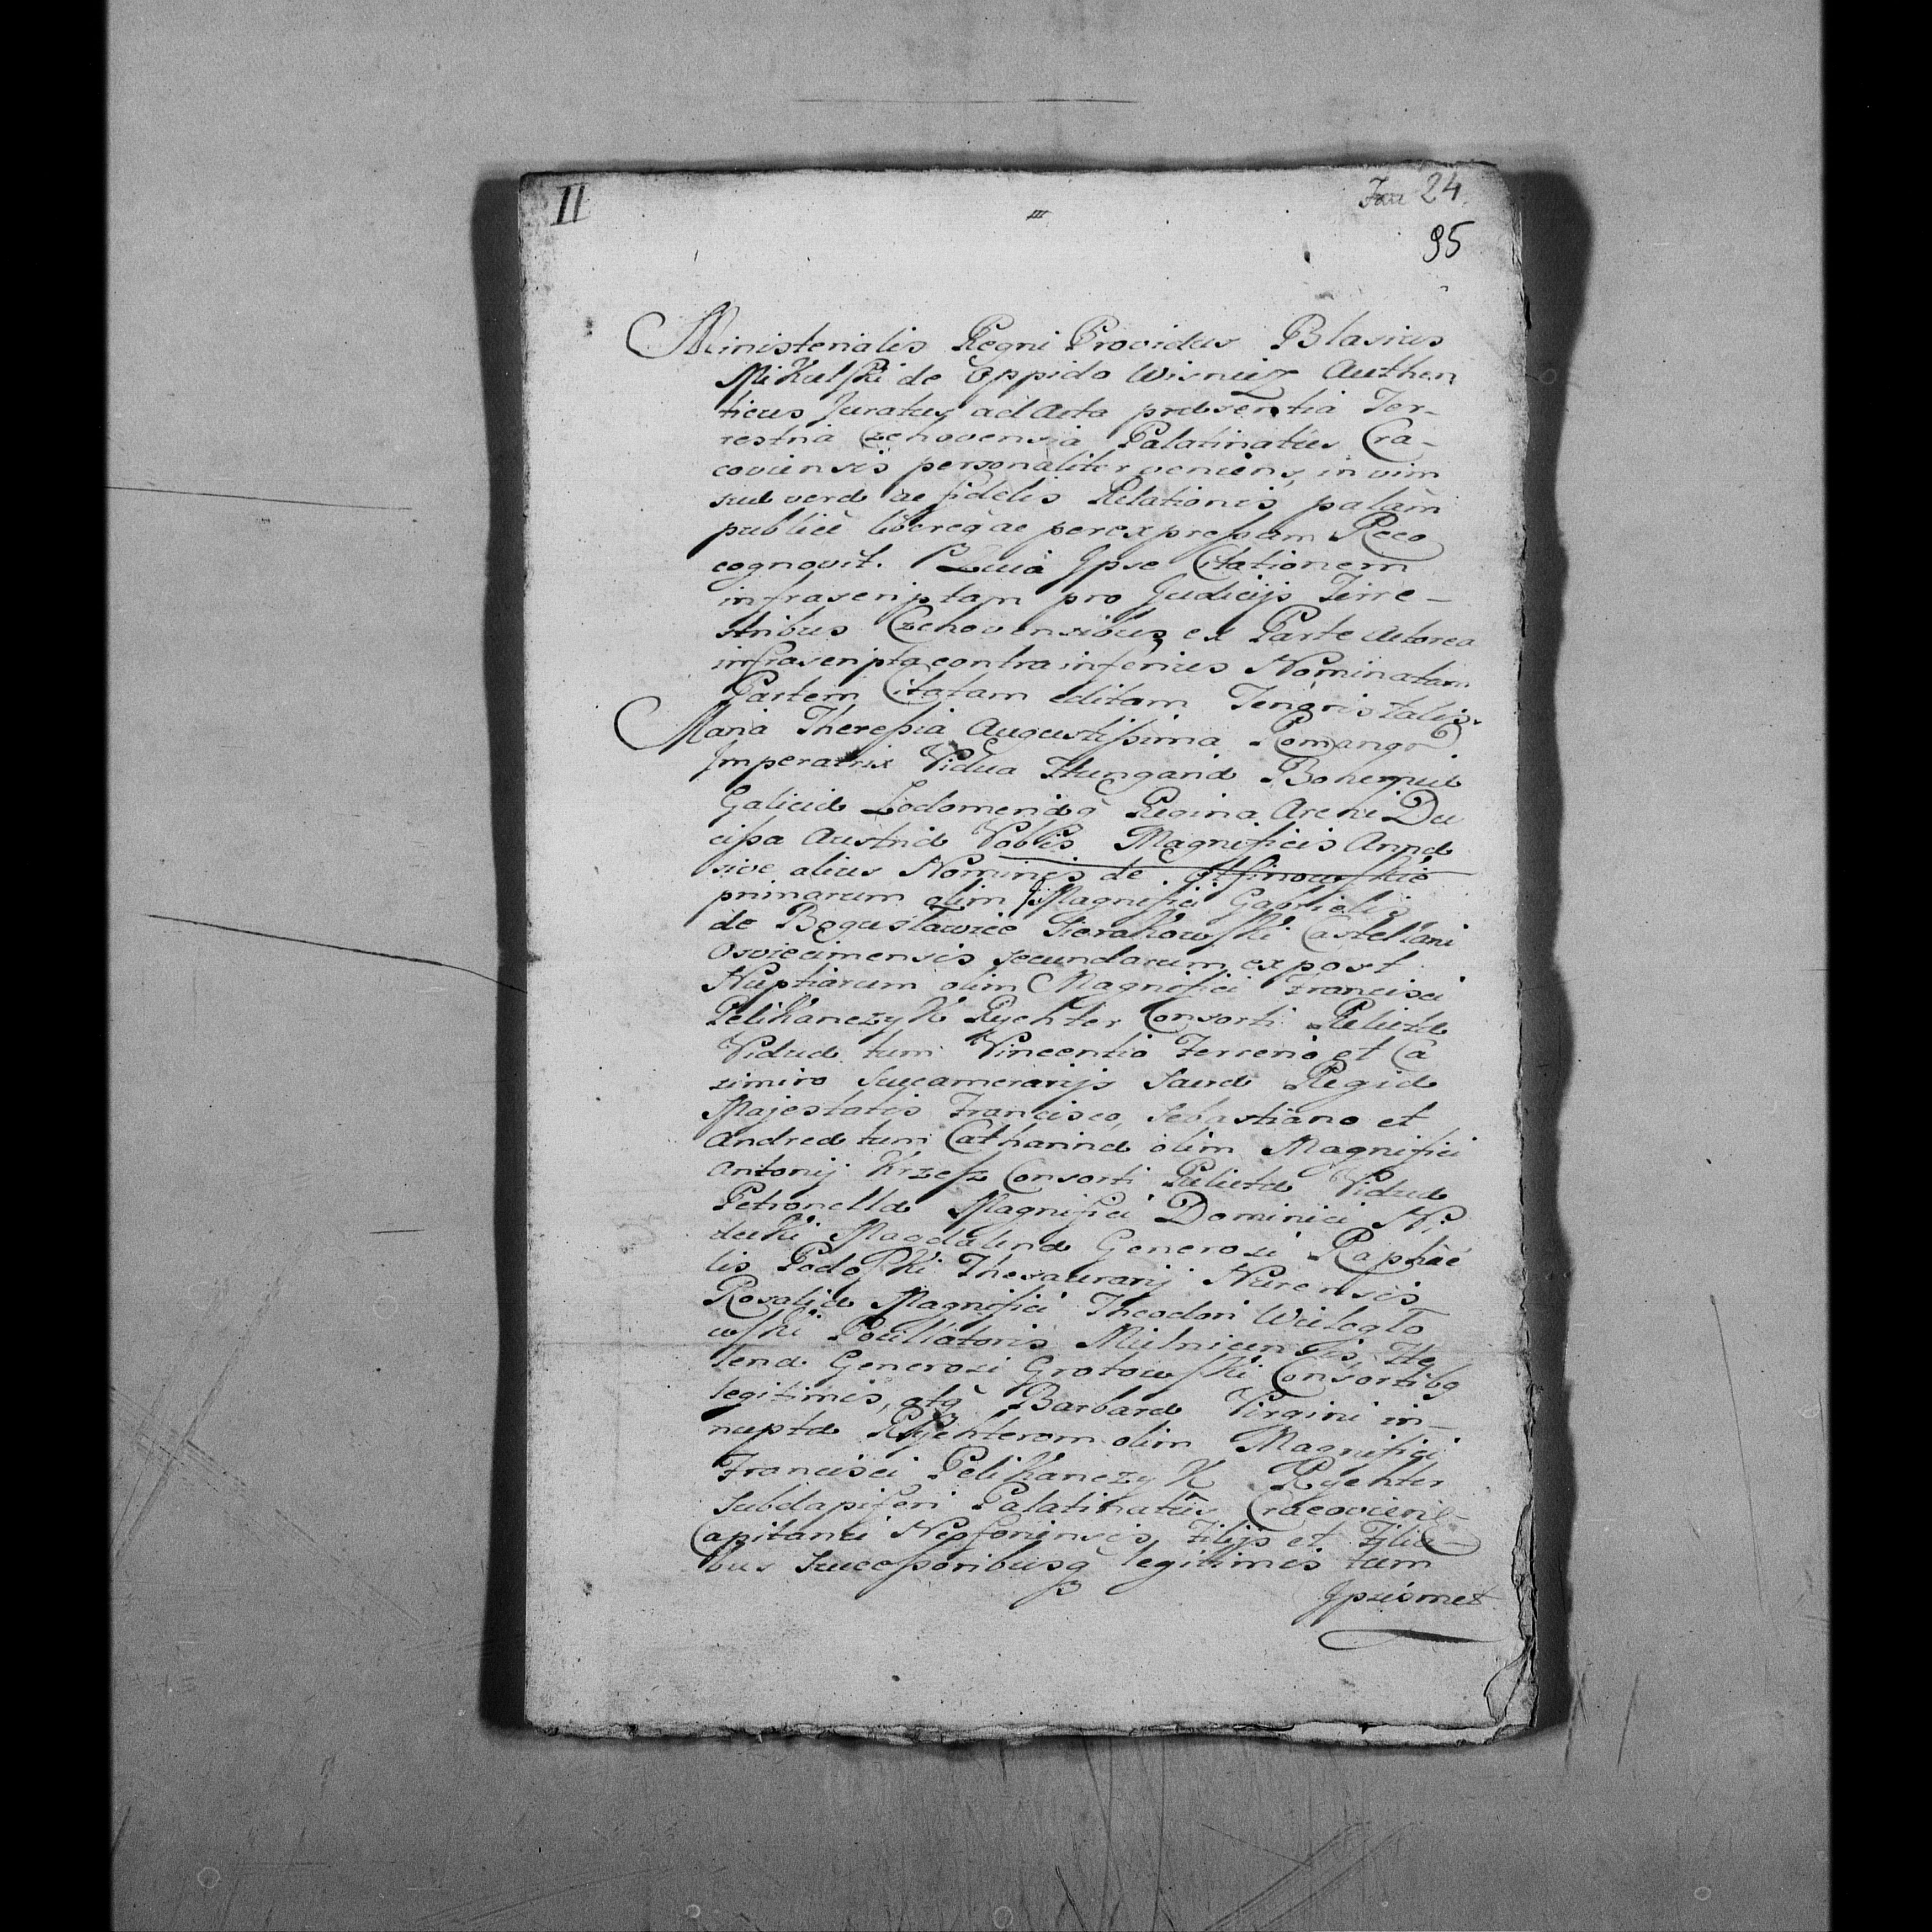 II
24
95
Ministerialis Regni Providus Blasius
Mikulski de Oppido Wisnicz Authen
ticus Juratus ad Acta præsentia Ter-
restria Czchoviensia Palatinatus Cra-
coviensis personaliter veniens, in vim
suæ veræ ac fidelis Relationis palàm
publicè liberèq ac per expressum Reco
cognovit. Quià Ipse Citationem
infrascriptam pro Judicijs Terre-
stribus Czchoviensibus ex Parte Actorea
infrascripta contra inferius Nominatam
Partem Citatam editam Tenoris talis.
Maria Theressia Augustissima Romanor
Imperatrix Vidua Hungariæ Bohemiæ
Galiciæ Lodomeriæq Regina Archi Du
cissa Austriæ Vobis Magnificis Annæ
sive alius Nominis de
primarum olim Magnifici Gabrielis
de Bogusławice Sierakowski Castellani
Osviecimensis secundarum ex post
Nuptiarum olim Magnifici Francisci
Pelikanczyk Rychter Consorti Relictæ
Viduæ tum Vincentio Ferrerio et Ca
simiro Succamerarijs Sacræ Regiæ
Majestatis Francisco, Sebastiano et
Andreæ tum Catharinæ olim Magnifici
Antonij Krzesz Consorti Relictæ Viduæ
Petronellæ Magnifici Dominici Ni
decki Magdalenæ Generosi Raphae
lis Podoski Thesaurarij Nurensis
Rosaliæ Magnifici Theodori Wielogło
wski Pocillatoris Mielnicensis, He
lenæ Generosi Grotowski Consortibq
legitimis, atq Barbaræ Virgini in-
nuptæ Rychterom olim Magnifici
Francisci Pelikanczyk Rychter
Subdapiferi Palatinatus Cracovien-
Capitanei Filijs et Filia-
bus Successoribusq legitimis tum
Ipsismet